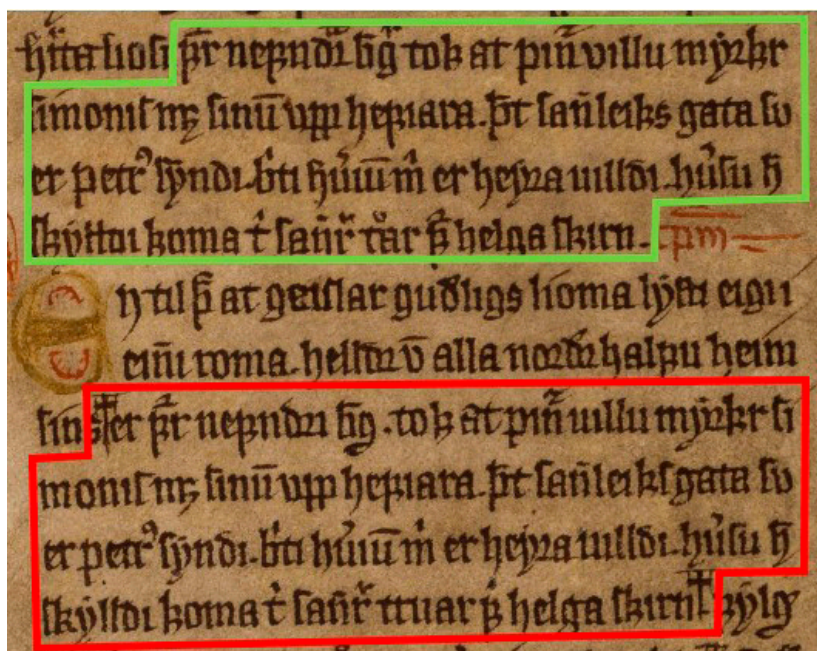 liosi fͬr nefndri b̄g tok at pin̄ villu myrkr
simonis mꝫ sinū vpp hefiara. þt san̄leiks gata su
er petrꝰ syndi. b̄ti hu͛iū m̄ er heyra uilldi. hu͛su h̄
skylldi koma t̓ san̄r tͦar f̄ helga skirn. pm
En til þ̄ at geislar guðligs lioma lysti eigi
eini roma. helldr v̄ alla nordr halfu heim
sins er fͬr nefndri b̄g. tok at pin̄ uillu myrkr si
monis mꝫ sinū vpp hefiara. þt san̄leiks gata su
er petrꝰ syndi. b̄ti hu͛iū m̄ er heyra uilldi. hu͛su h̄
skylldi koma t̓ san̄r truar f̄ helga skirn fylg